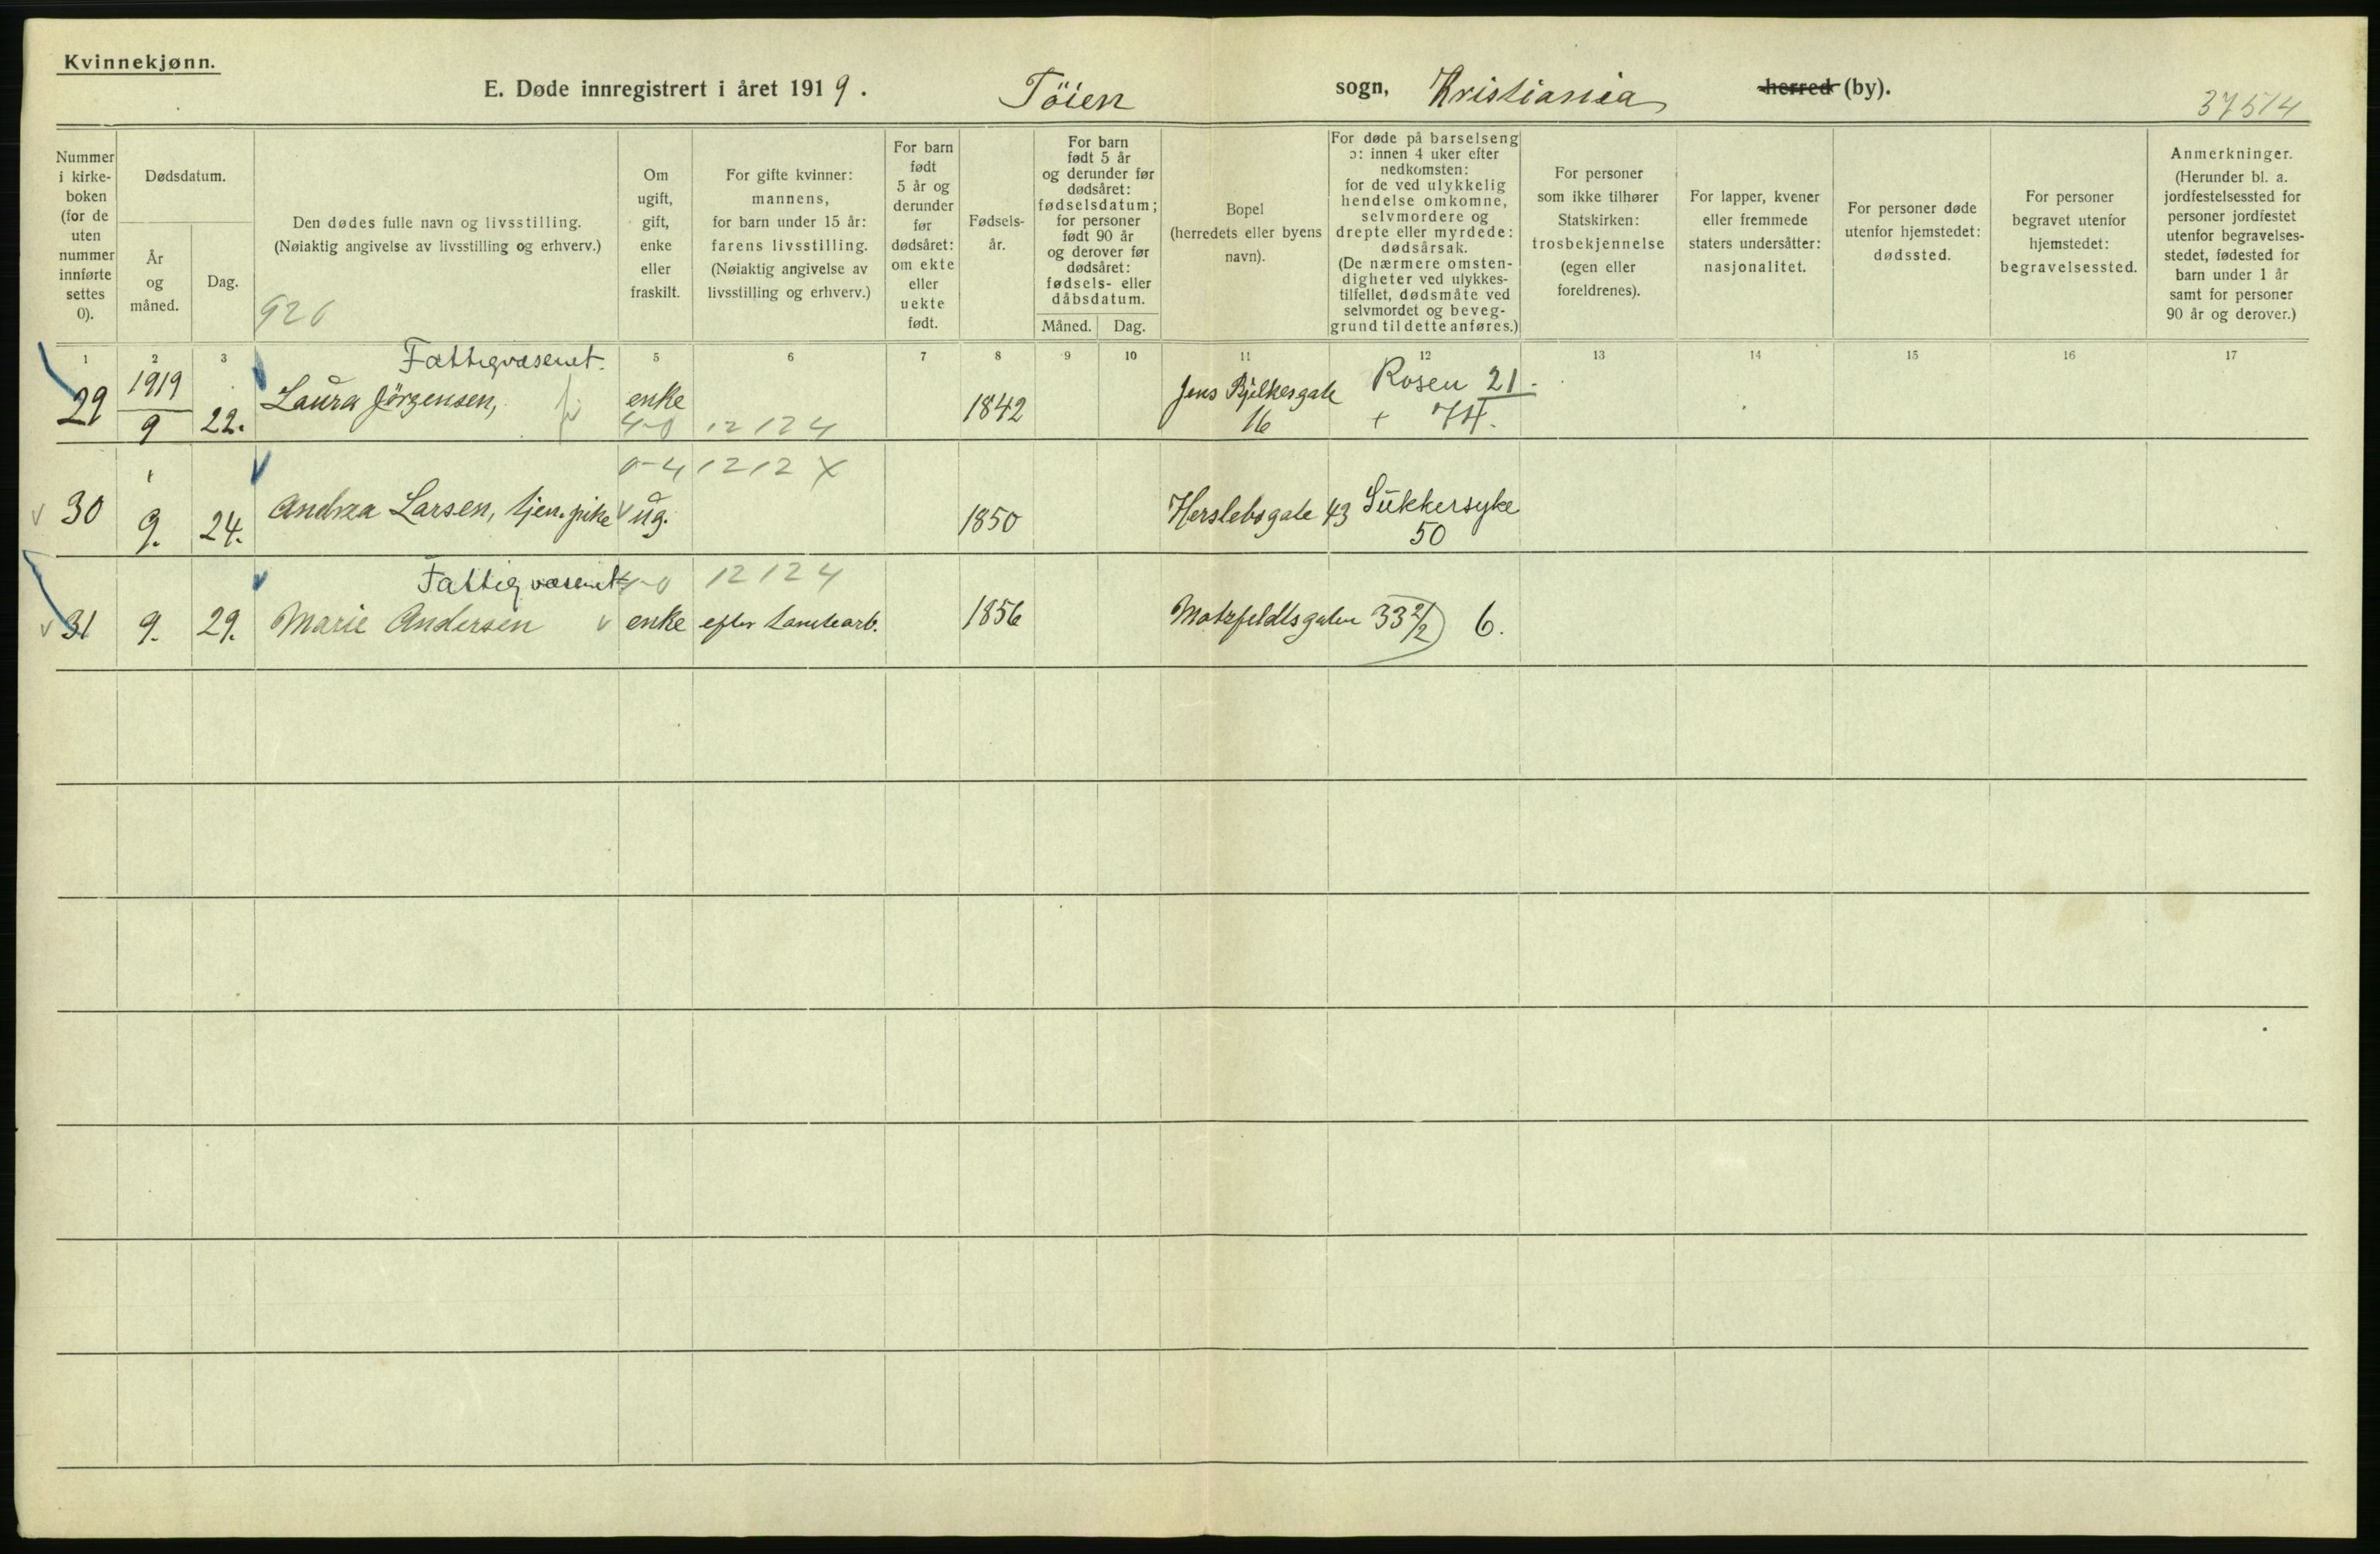 Kvinnekjønn.
E. Døde innregistrert i året 1919. Töien sogn, Kristiania herred (by).
37514
Nummer i kirke-boken (for de uten nummer innførte settes 0).
Dødsdatum.
År og måned.
Dag.
Den dødes fulle navn og livsstilling. (Nøiaktig angivelse av livsstilling og erhverv.)
920
Om ugift, gift, enke eller fraskilt.
For gifte kvinner: mannens, for barn under 15 år: farens livsstilling. (Nøiaktig angivelse av livsstilling og erhverv.)
For barn født 5 år og derunder før dødsåret: om ekte eller uekte født.
Fødsels-år.
For barn født 5 år og derunder før dødsåret: fødselsdatum; for personer født 90 år og derover før dødsåret: fødsels- eller dåbsdatum.
Måned. Dag.
Bopel (herredets eller byens navn).
For døde på barselseng ɔ: innen 4 uker efter nedkomsten: for de ved ulykkelig hendelse omkomne, selvmordere og drepte eller myrdede: dødsårsak. (De nærmere omsten-digheter ved ulykkes-tilfellet, dødsmåte ved selvmordet og beveg-grund til dette anføres.)
For personer som ikke tilhører Statskirken: trosbekjennelse (egen eller foreldrenes).
For lapper, kvener eller fremmede staters undersåtter: nasjonalitet.
For personer døde utenfor hjemstedet: dødssted.
For personer begravet utenfor hjemstedet: begravelsessted.
Anmerkninger. (Herunder bl. a. jordfestelsessted for personer jordfestet utenfor begravelses-stedet, fødested for barn under 1 år samt for personer 90 år og derover.)
1 2 3 5 6 7 8 9 10 11 12 13 14 15 16 17
Fattigvæsenet.
29 1919 9 22. Laura Jörgensen, enke 1842 Jens Bjelkesgate 16 Rosen 21.
4-0 12 12 4 + 74.
0-4 12 12 X
30 9. 24. Andrea Larsen, tjen.pike ug. 1850 Herslebsgate 43 Sukkersyke
50
Fattigvæsenet 4-0 12 12 4
31 9. 29. Marie Andersen enke efter 1856 Motzfeldtsgaten 33 2/2 6.